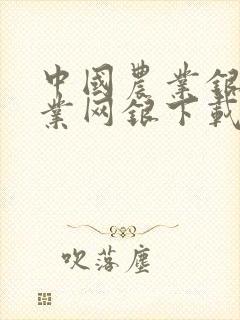 中國農業銀
業网銀下載
吹落塵